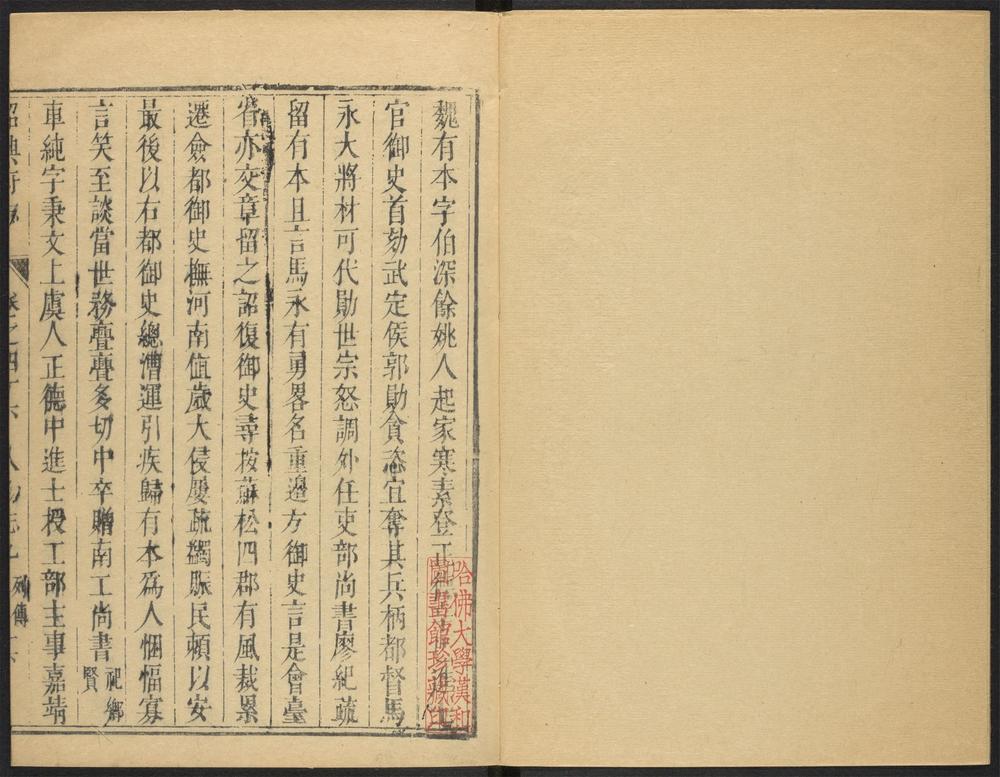 魏有本字伯深餘姚人起家寒素登正德
官御史首劾武定侯郭勛貪恣宜奪其兵柄都督馬
永大將材可代勛世宗怒調外任吏部尚書廖紀疏
留有本且言馬永有勇畧名重邊方御史言是會臺
省亦交章留之詔復御史尋按蘇松四郡有風裁累
遷僉都御史撫河南值歲大侵屢疏蠲賑民頼以安
最後以右都御史總漕運引疾歸有本為人悃愊寡
言笑至談當世務亹亹多切中卒贈南工尚書祀鄉賢
車純字秉文上虞人正德中進士授工部主事嘉靖
紹興府志 卷之四十六 人物志七 列傳
哈佛大學漢和
圖書館珍藏印